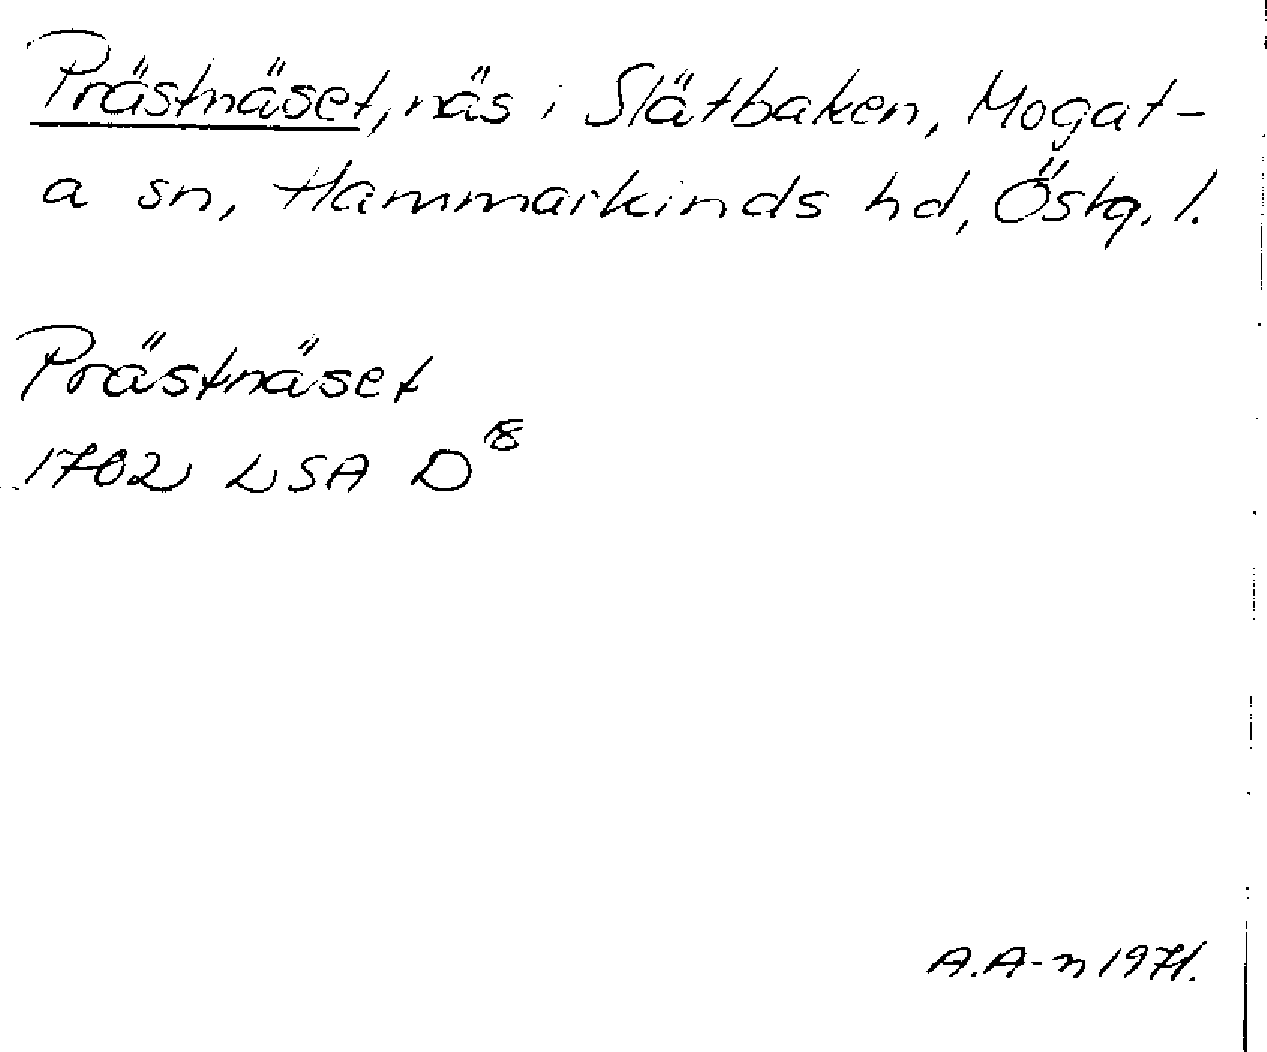 Prästnäset, näs i Slätbaken, Mogat-
a sn, Hammarkinds hd, Östg. l.
Prästnäset
1702 LSA D 18
A.A-n 1971.